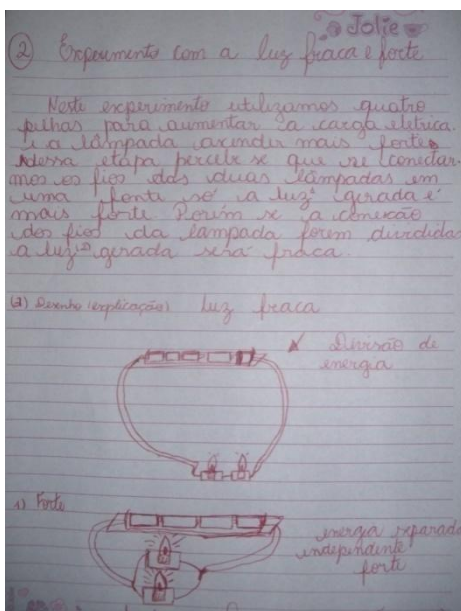 Jolie
② Experimento com a luz fraca e forte
Neste experimento utilizamos quatro
pilhas para aumentar a carga elétrica
e a lâmpada acender mais forte.
Nessa etapa percebe se que se conectar-
mos os fios das duas lâmpadas em
uma fonte só a luz gerada é
mais forte Porém se a conexão
dos fios da lâmpada forem divididas
a luz gerada será fraca.
(2) Desenho (explicação) luz fraca
Divisão de
energia
1) Forte
energia separada
independente
forte